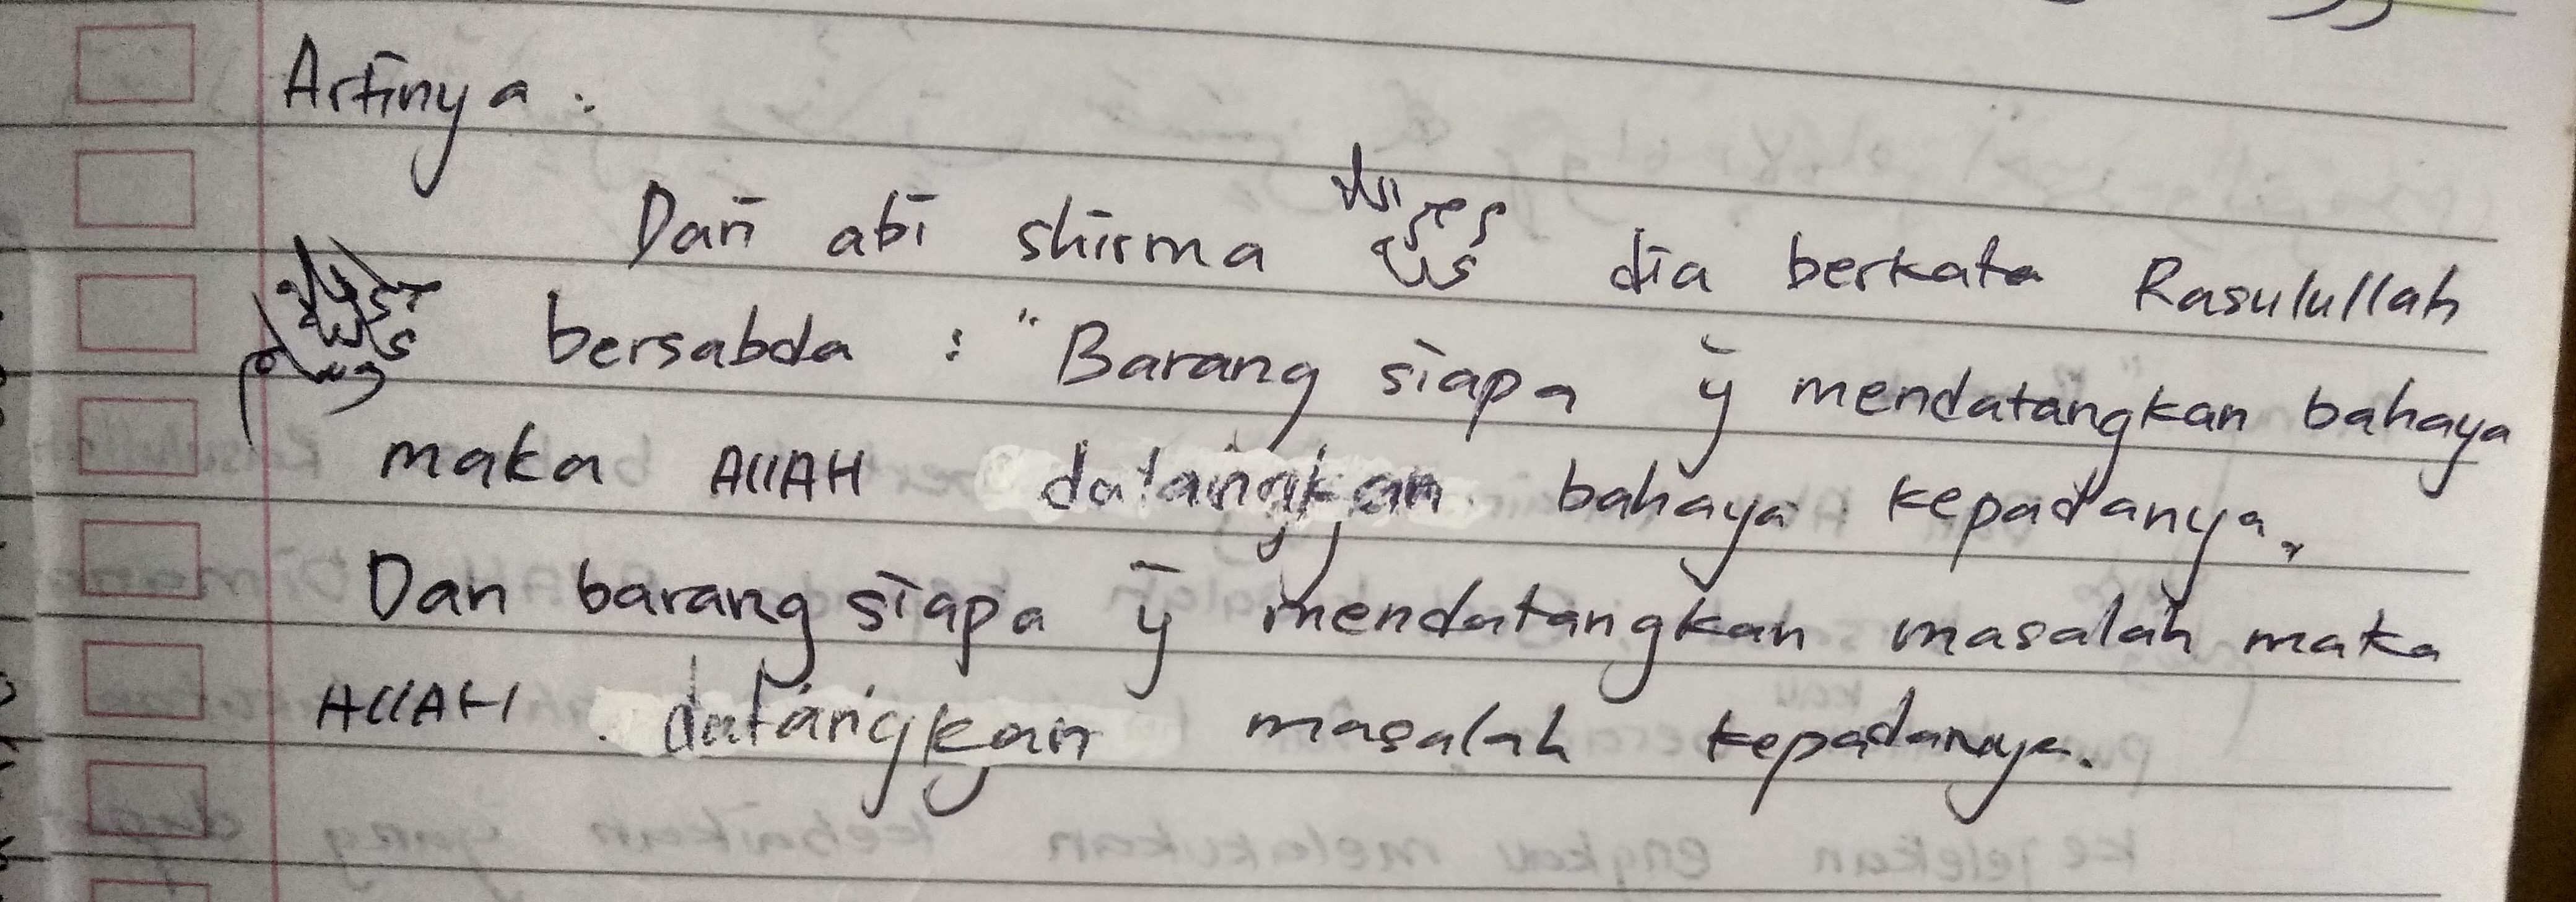 Artinya :
Dari abi shirma رضي الله عنه dia berkata Rasulullah
صلى الله عليه وسلم bersabda : "Barang siapa yg mendatangkan bahaya
maka AllAH datangkan bahaya kepadanya,
Dan barang siapa yg mendatangkan masalah maka
AllAH datangkan masalah kepadanya.